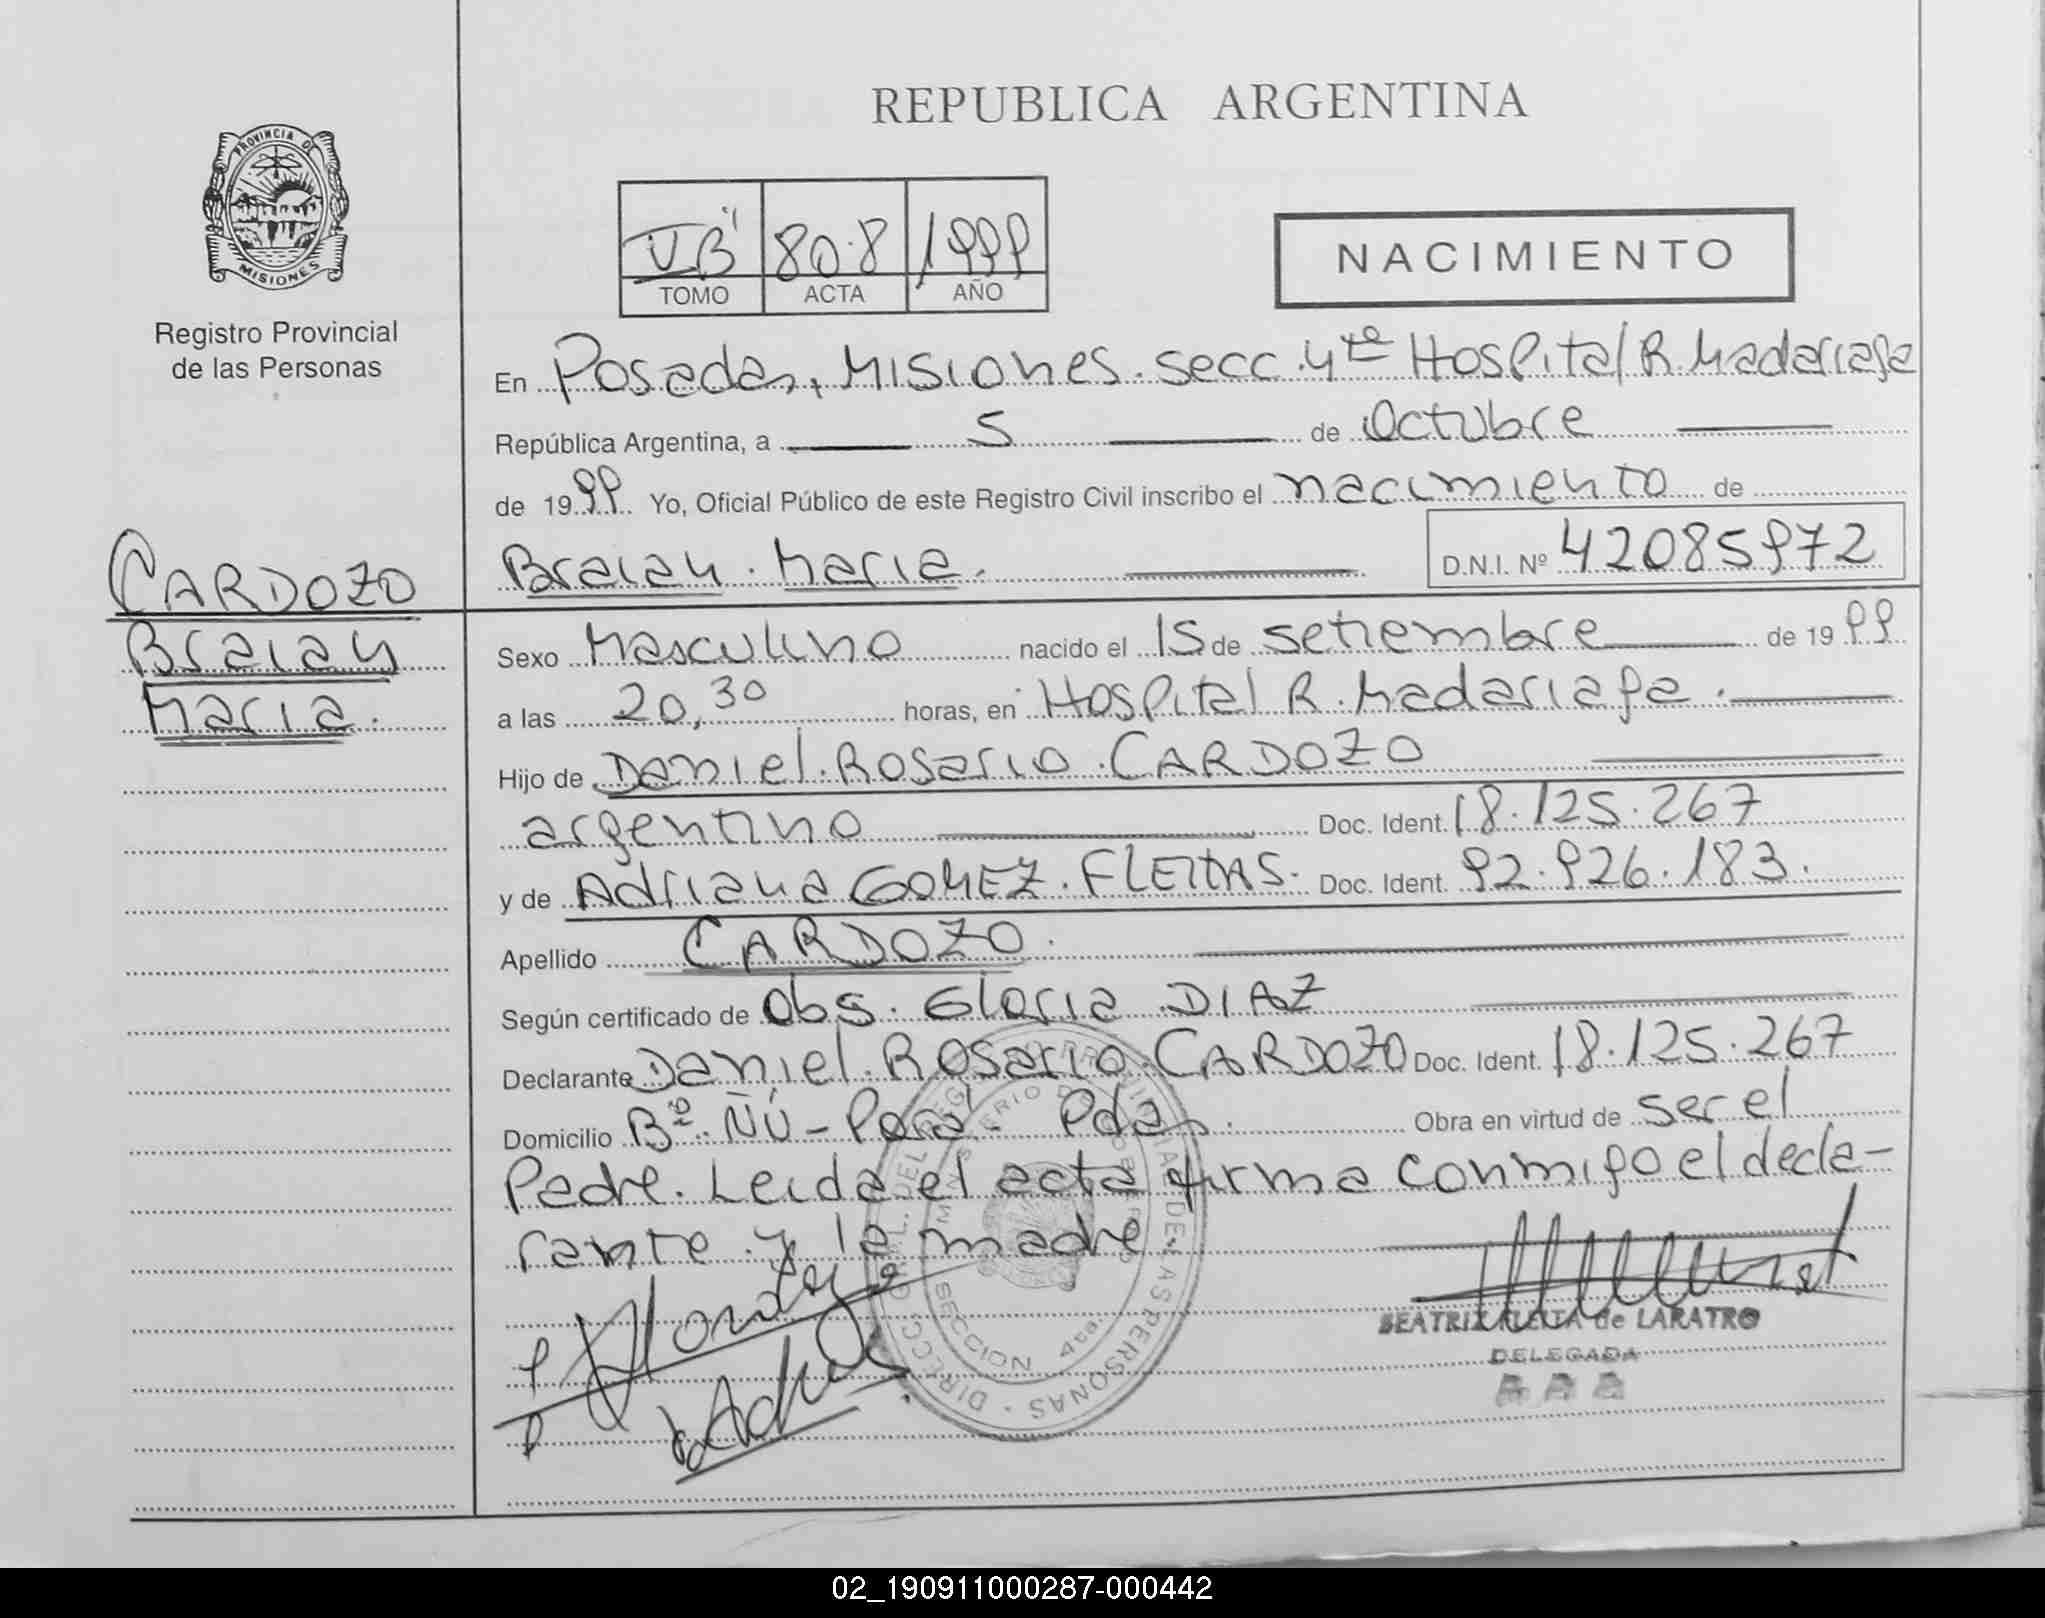 REPUBLICA ARGENTINA
PROVINCIA DE
MISIONES
Registro Provincial
de las Personas
808 1999
TOMO ACTA AÑO
NACIMIENTO
En Posadas, Misiones. secc. 4ta Hospital R. Madariaga
República Argentina, a 5 de Octubre
de 1999 Yo, Oficial Público de este Registro Civil inscribo el nacimiento de
Braian Maria. D.N.I. Nº 42085972
CARDOZO
Braian
Maria.
Sexo Masculino nacido el 15 de setiembre de 1999
a las 20,30 horas, en Hospital R. Madariaga.
Hijo de Daniel Rosario CARDOZO
argentino Doc. Ident. 18.125.267
y de Adriana GOMEZ FLEITAS. Doc. Ident. 92.926.183.
Apellido CARDOZO.
Según certificado de Obs. Gloria DIAZ
Declarante Daniel Rosario CARDOZO Doc. Ident. 18.125.267
Domicilio Bº ÑÚ - Porá - Pdas. Obra en virtud de ser el
Padre. Leida el acta firma conmigo el decla-
rante y la madre
BEATRIZ FLEITA de LARATRO
DELEGADA
SECCION 4ta.
02_190911000287-000442